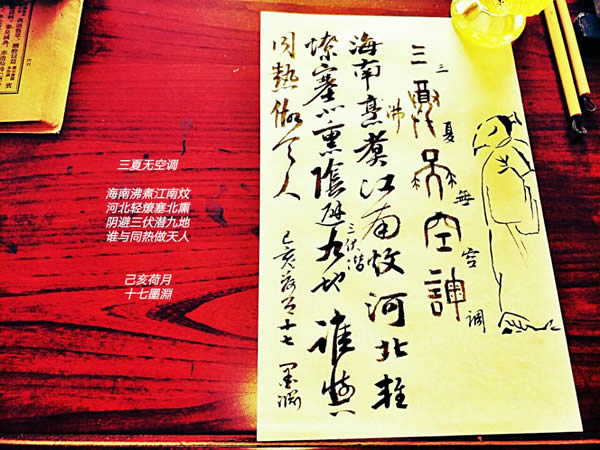 三夏无空调
海南沸煮江南炆
河北轻燎塞北熏
阴避三伏潜九地
谁与同热做天人
己亥荷月
十七墨淵
三夏無空調
三夏無空调
海南沸煮江南炆河北輕
燎塞北熏陰避三伏潜九地誰與
同熱做天人
己亥荷月十七 墨渊